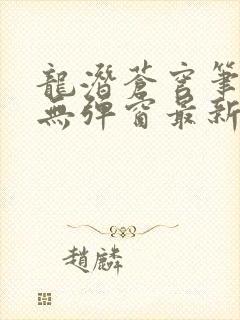 龍潛蒼穹筆
無彈窗最新
趙麟